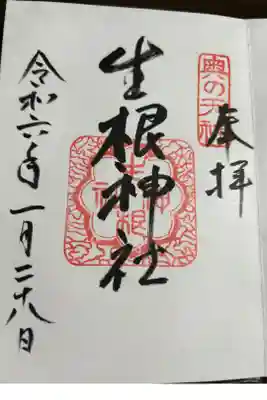 奉拝
奥の天神
生根神社
令和六年一月二十八日